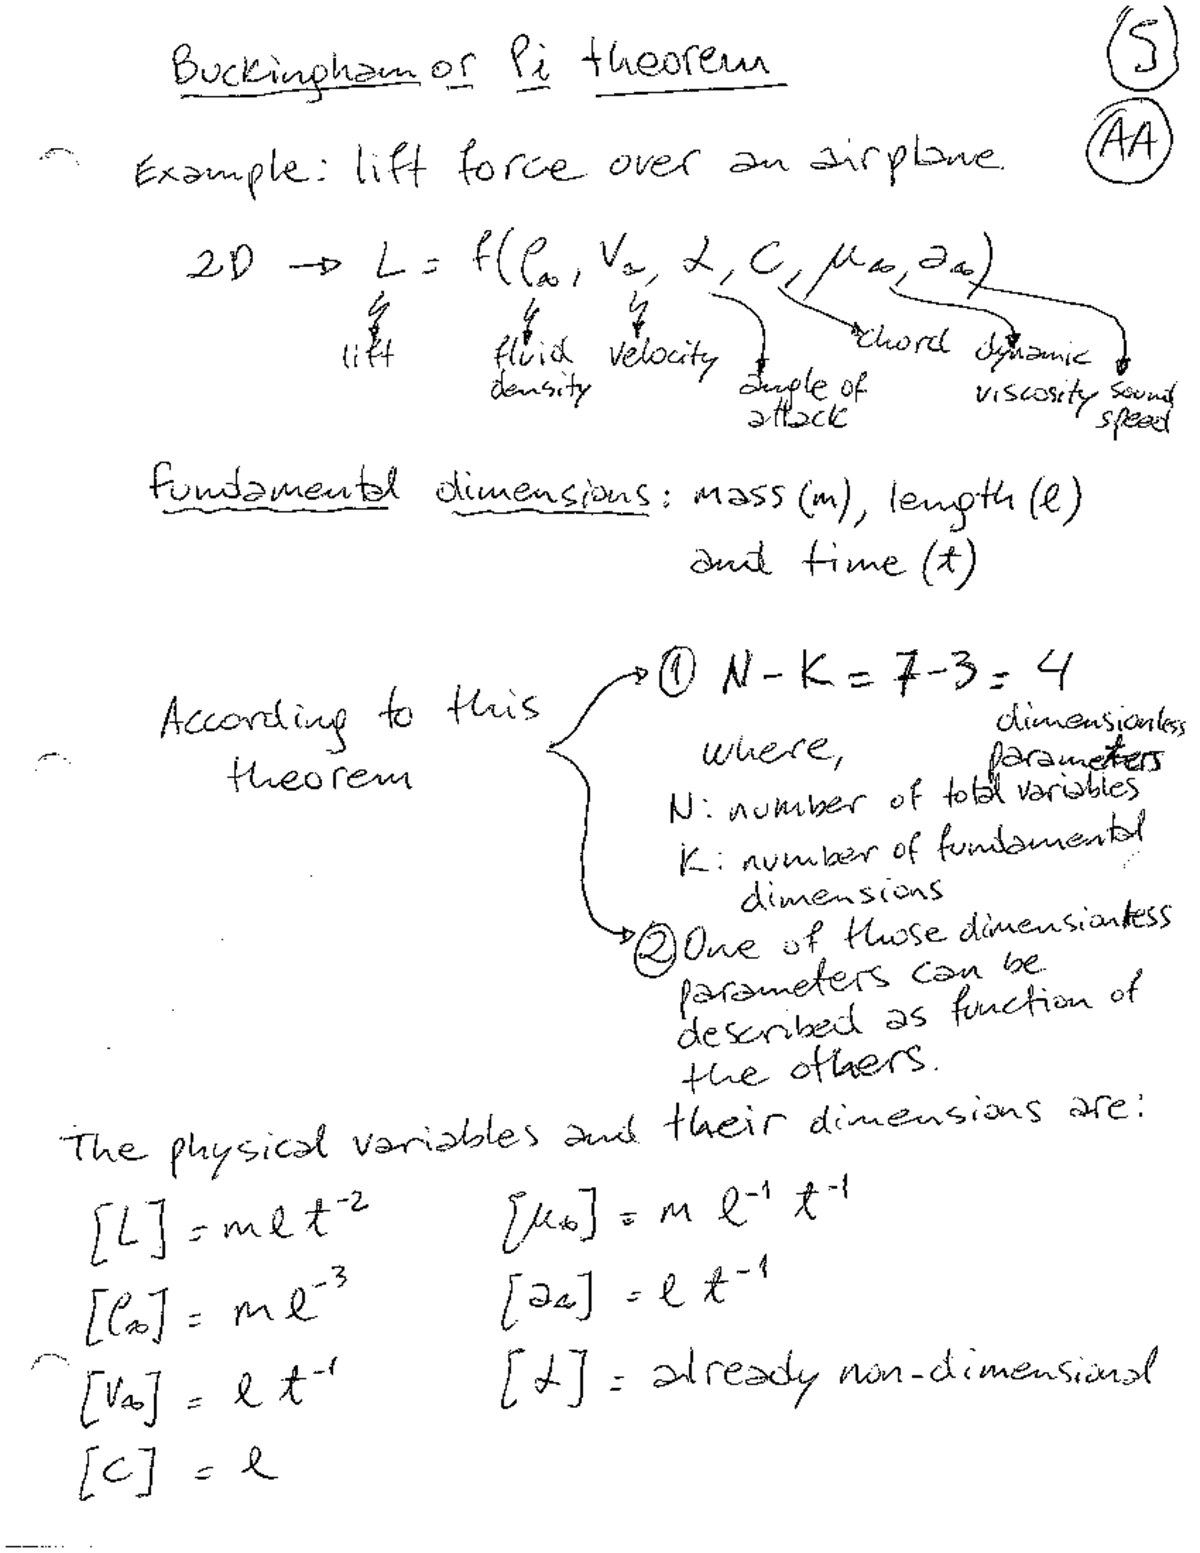 Buckingham or Pi theorem
5
AA
Example: lift force over an airplane.
2D → L = f(ρ∞, V∞, α, C, μ∞, a∞)
lift
fluid density
velocity
angle of attack
chord
dynamic viscosity
sound speed
fundamental dimensions: mass (m), length (l)
and time (t)
According to this
theorem
① N - K = 7-3 = 4
dimensionless
parameters
where,
N: number of total variables
K: number of fundamental
dimensions
② One of those dimensionless
parameters can be
described as function of
the others.
The physical variables and their dimensions are:
[L] = m l t⁻²
[μ∞] = m l⁻¹ t⁻¹
[ρ∞] = m l⁻³
[a∞] = l t⁻¹
[V∞] = l t⁻¹
[α] = already non-dimensional
[C] = l